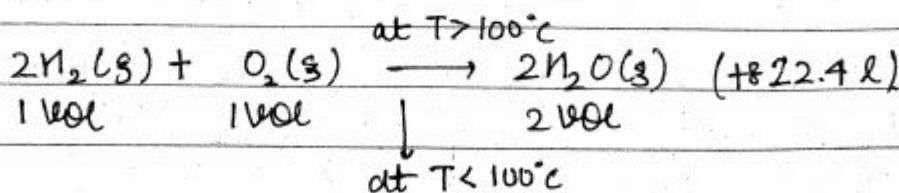 at T>100°C
2H₂(g) + O₂(g) → 2H₂O(g) (+822.4 l)
1 vol 1 vol 2 vol
↓
at T< 100°C